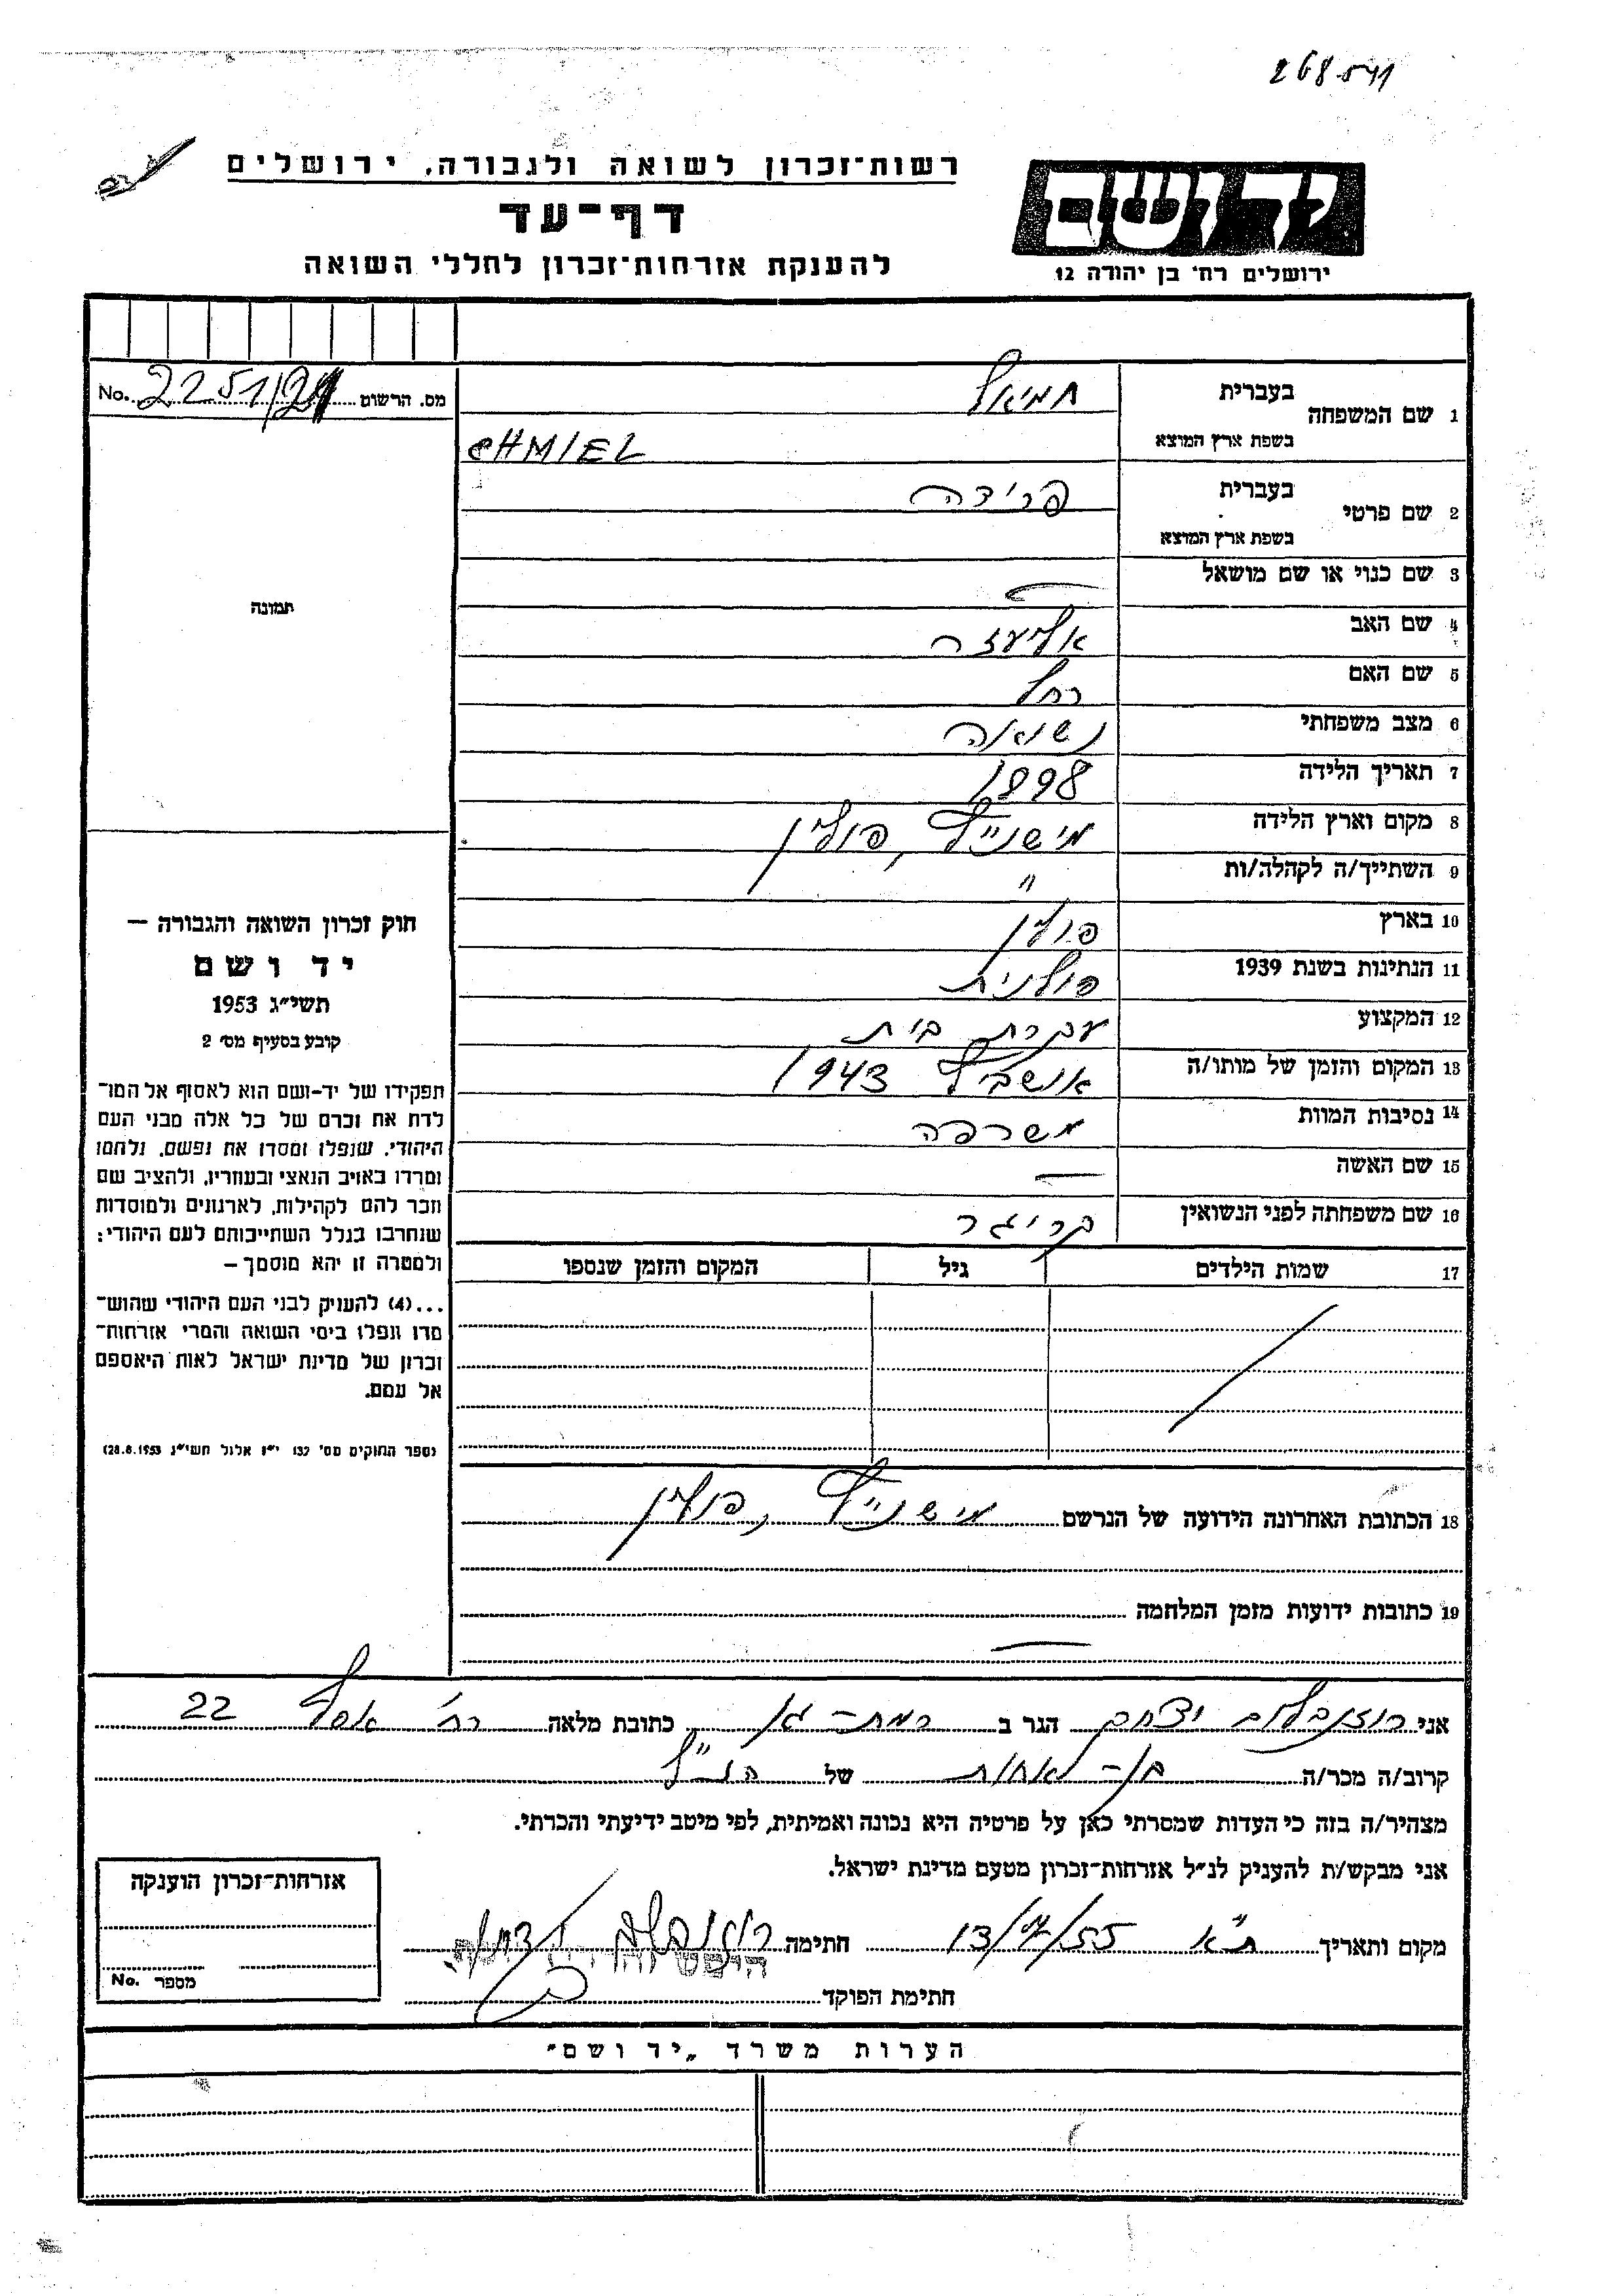 268541
רשות־זכרון לשואה ולגבורה, ירושלים
דף־עד
להענקת אזרחות־זכרון לחללי השואה
יד ושם
ירושלים רח׳ בן יהודה 12
מס. הרשום No. 2251/21
1 שם המשפחה בעברית חמיאל
בשפת ארץ המוצא CHMIEL
2 שם פרטי בעברית פרידה
בשפת ארץ המוצא
3 שם כנוי או שם מושאל —
4 שם האב אליעזר
5 שם האם רחל
6 מצב משפחתי נשואה
7 תאריך הלידה 1898
8 מקום וארץ הלידה מישניץ, פולין
9 השתייך/ה לקהלה/ות "
10 בארץ פולין
11 הנתינות בשנת 1939 פולנית
12 המקצוע עקרת בית
13 המקום והזמן של מותו/ה אושביץ 1943
14 נסיבות המוות משרפה
15 שם האשה —
16 שם משפחתה לפני הנשואין קריגר
17 שמות הילדים גיל המקום והזמן שנספו
18 הכתובת האחרונה הידועה של הנרשם מישניץ, פולין
19 כתובות ידועות מזמן המלחמה
—
תמונה
חוק זכרון השואה והגבורה —
יד ושם
תשי״ג 1953
קובע בסעיף מס׳ 2
תפקידו של יד־ושם הוא לאסוף אל המו־
לדת את זכרם של כל אלה מבני העם
היהודי, שנפלו ומסרו את נפשם, נלחמו
ומרדו באויב הנאצי ובעוזריו, ולהציב שם
וזכר להם לקהילות, לארגונים ולמוסדות
שנחרבו בגלל השתייכותם לעם היהודי:
ולמטרה זו יהא מוסמך —
...(4) להעניק לבני העם היהודי שהוש־
מדו ונפלו בימי השואה והמרי אזרחות־
זכרון של מדינת ישראל לאות היאספם
אל עמם.
(ספר החוקים מס׳ 132 י״ז אלול תשי״ג 28.8.1953)
אני רוזנבלום יצחק הגר ב רמת-גן כתובת מלאה רח׳ אסף 22
קרוב/ה מכר/ה בן-אחות של הנ״ל
מצהיר/ה בזה כי העדות שמסרתי כאן על פרטיה היא נכונה ואמיתית, לפי מיטב ידיעתי והכרתי.
אני מבקש/ת להעניק לנ״ל אזרחות־זכרון מטעם מדינת ישראל.
מקום ותאריך ת״א 13/ /55 חתימה רוזנבלום יצחק
חתימת הפוקד
אזרחות־זכרון הוענקה
מספר No.
הערות משרד „יד ושם״